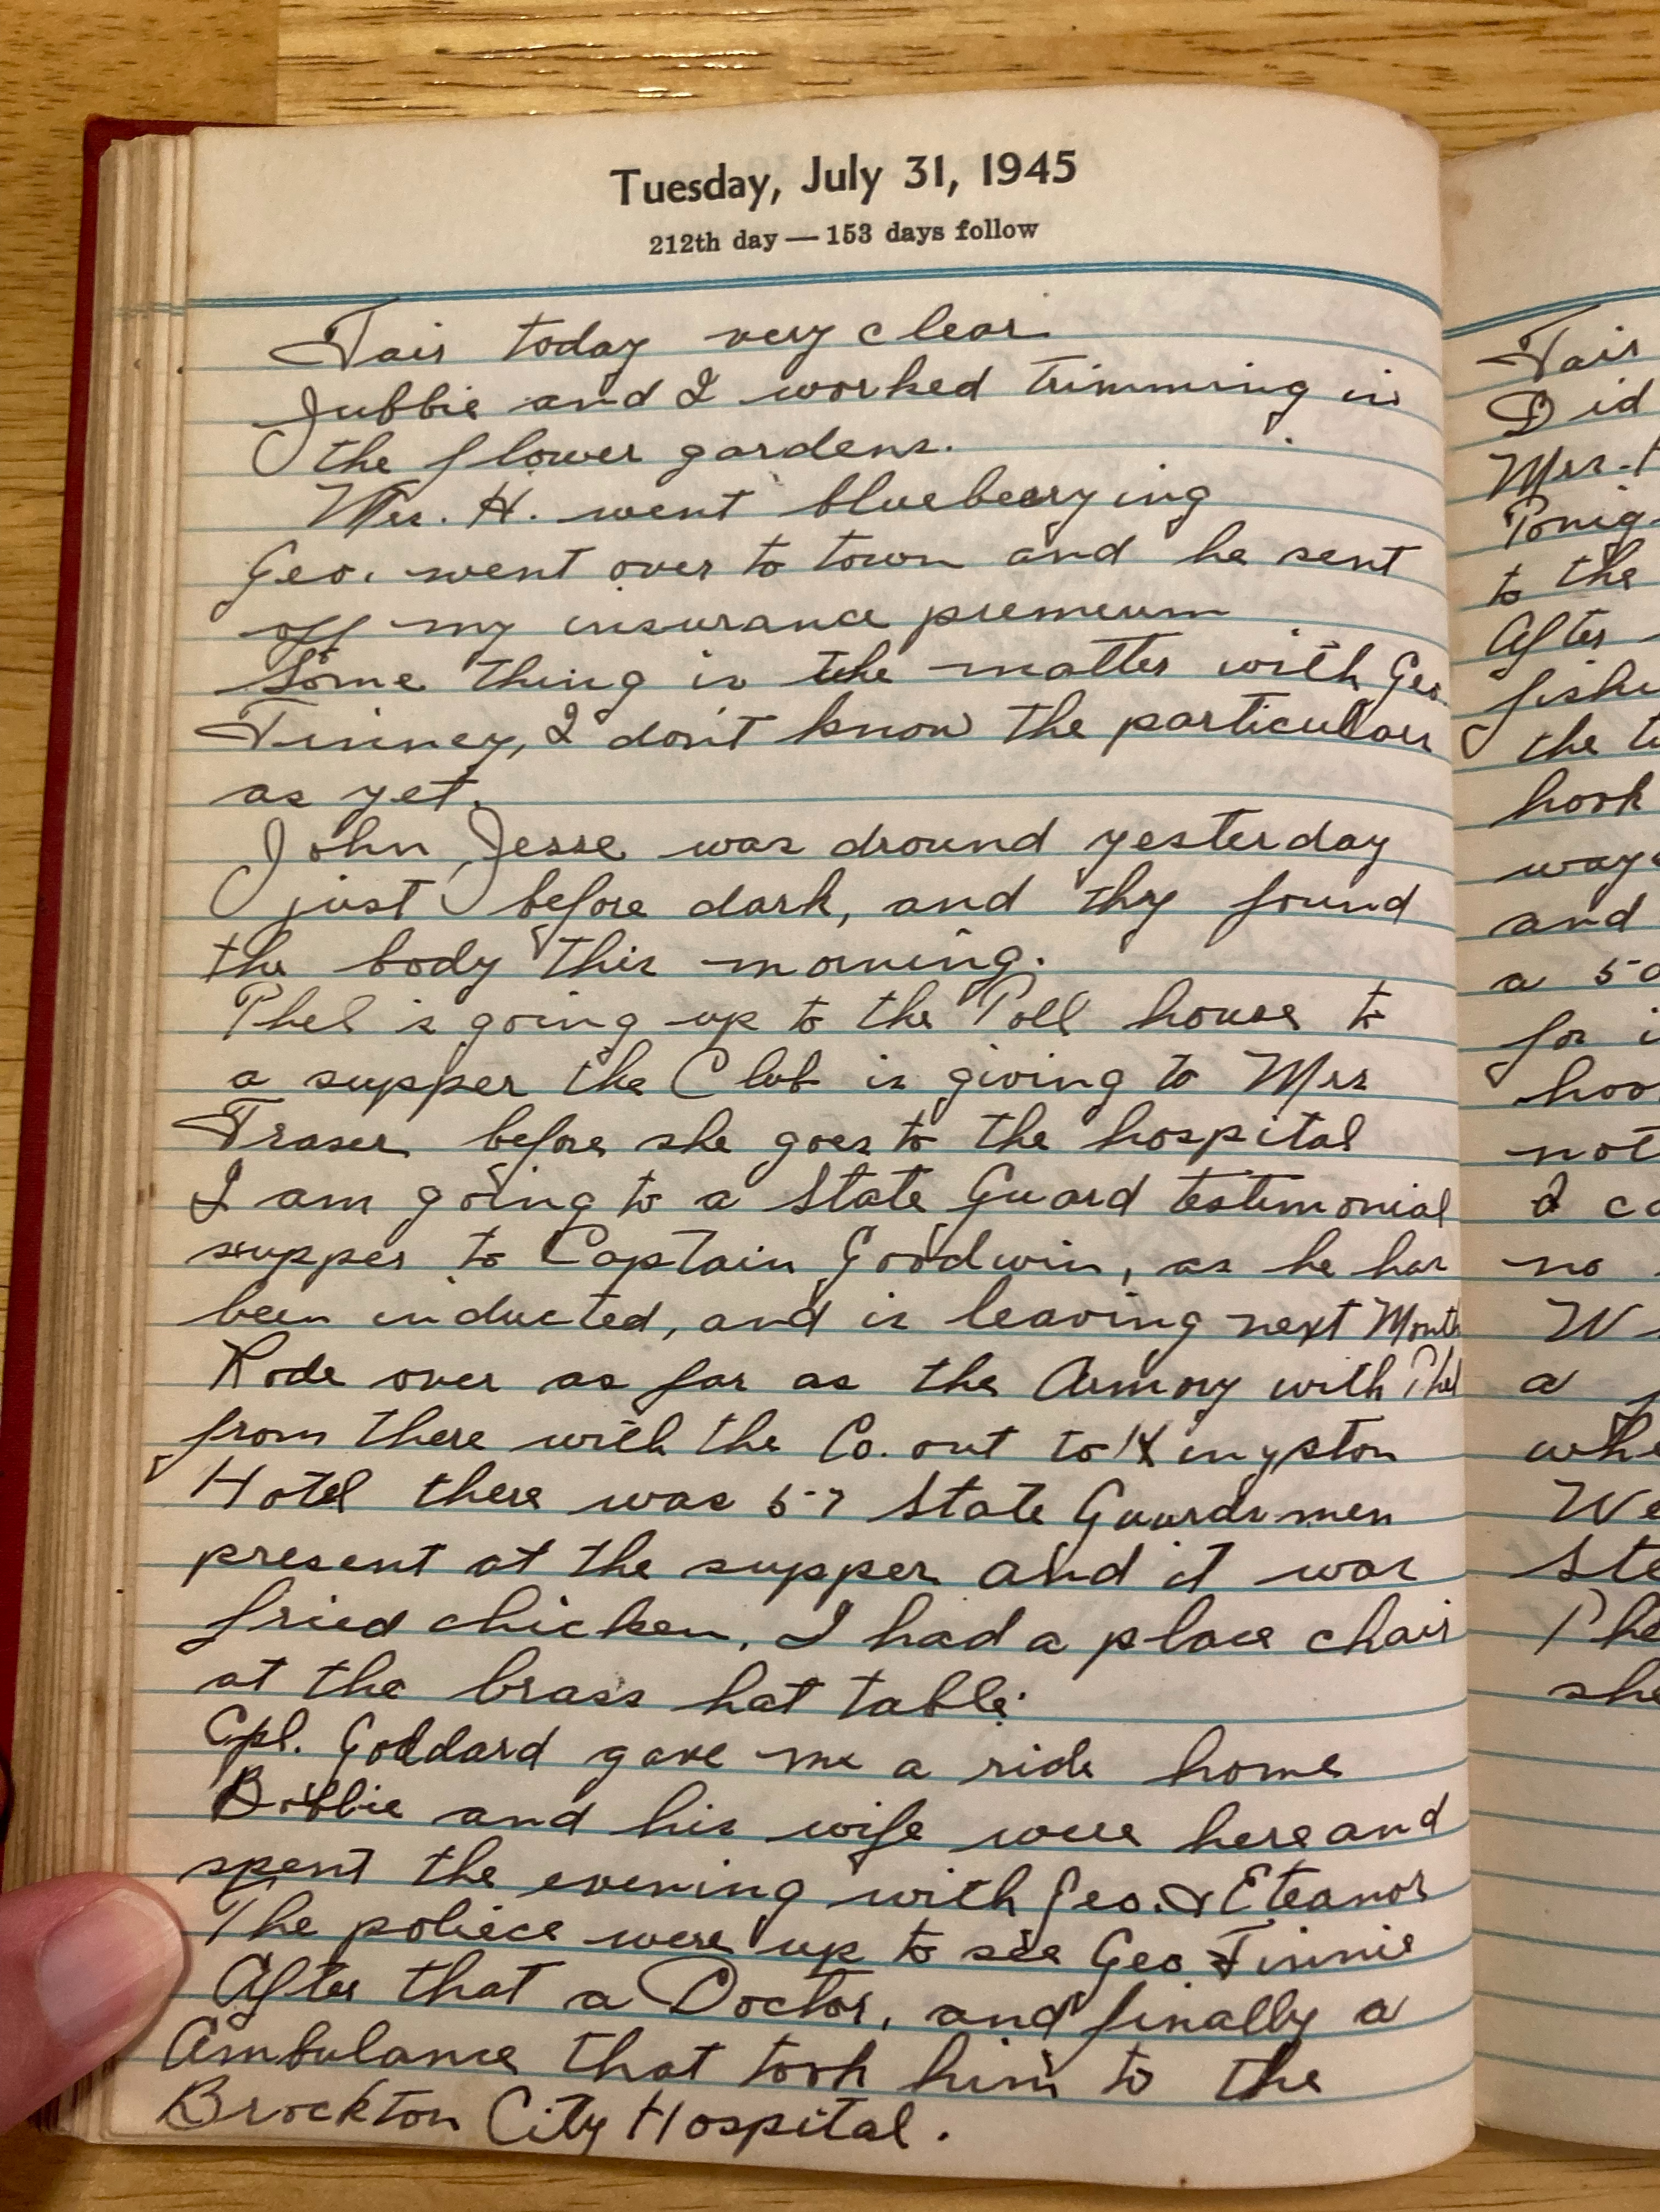 Tuesday, July 31, 1945
212th day — 153 days follow
Fair today very clear.
Jubbie and I worked trimming in
the flower gardens.
Mrs. H. went blueberrying
Geo. went over to town and he sent
off my insurance premeum
Some thing is the matter with Geo.
Finney, I don't know the particulars
as yet.
John Jesse was dround yesterday
just before dark, and thy found
the body this morning.
Phel is going up to the Poll house to
a supper the Club is giving to Mrs
Fraser before she goes to the hospital
I am going to a State Guard testimonial
supper to Captain Goodwin, as he has
been inducted, and is leaving next Month
Rode over as far as the Armory with Phel
from there with the Co. out to Kingston
Hotel there was 57 State Guardsmen
present at the supper and it was
fried chicken. I had a place chair
at the brass hat table.
Cpl. Goddard gave me a ride home
Bobbie and his wife were here and
spent the evening with Geo. & Eleanor
The poliece were up to see Geo Finnie
After that a Doctor, and finally a
Ambulance that took him to the
Brockton City Hospital.
Fair
Did
Mrs. H
Tonig
to the
After
fishi
the
hook
way
and
a 50
for i
hoo
not
I co
no
W
a
whe
We
Ste
Phe
she